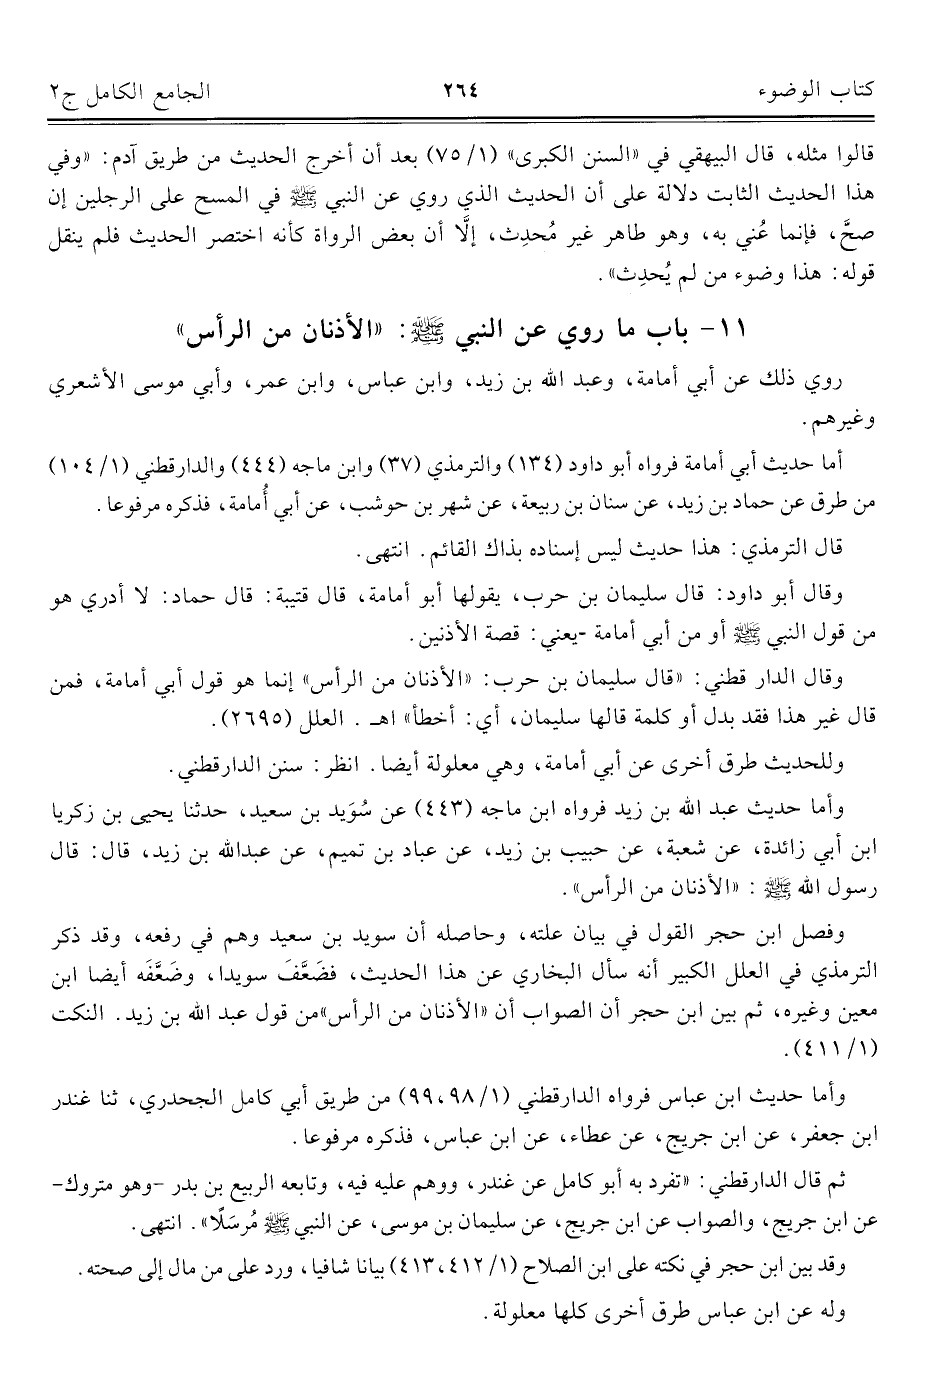 كتاب الوضوء ٢٦٤ الجامع الكامل ج٢
قالوا مثله، قال البيهقي في «السنن الكبرى» (١/ ٧٥) بعد أن أخرج الحديث من طريق آدم: «وفي
هذا الحديث الثابت دلالة على أن الحديث الذي روي عن النبي ﷺ في المسح على الرجلين إن
صحَّ، فإنما عُني به، وهو طاهر غير مُحدِث، إلَّا أن بعض الرواة كأنه اختصر الحديث فلم ينقل
قوله: هذا وضوء من لم يُحدِث».
١١- باب ما روي عن النبي ﷺ: «الأذنان من الرأس»
روي ذلك عن أبي أمامة، وعبد الله بن زيد، وابن عباس، وابن عمر، وأبي موسى الأشعري
وغيرهم.
أما حديث أبي أمامة فرواه أبو داود (١٣٤) والترمذي (٣٧) وابن ماجه (٤٤٤) والدارقطني (١/ ١٠٤)
من طرق عن حماد بن زيد، عن سنان بن ربيعة، عن شهر بن حوشب، عن أبي أُمامة، فذكره مرفوعا.
قال الترمذي: هذا حديث ليس إسناده بذاك القائم. انتهى.
وقال أبو داود: قال سليمان بن حرب، يقولها أبو أمامة، قال قتيبة: قال حماد: لا أدري هو
من قول النبي ﷺ أو من أبي أمامة -يعني: قصة الأذنين.
وقال الدار قطني: «قال سليمان بن حرب: «الأذنان من الرأس» إنما هو قول أبي أمامة، فمن
قال غير هذا فقد بدل أو كلمة قالها سليمان، أي: أخطأ» اهـ . العلل (٢٦٩٥).
وللحديث طرق أخرى عن أبي أمامة، وهي معلولة أيضا. انظر: سنن الدارقطني.
وأما حديث عبد الله بن زيد فرواه ابن ماجه (٤٤٣) عن سُوَيد بن سعيد، حدثنا يحيى بن زكريا
ابن أبي زائدة، عن شعبة، عن حبيب بن زيد، عن عباد بن تميم، عن عبدالله بن زيد، قال: قال
رسول الله ﷺ : «الأذنان من الرأس».
وفصل ابن حجر القول في بيان علته، وحاصله أن سويد بن سعيد وهم في رفعه، وقد ذكر
الترمذي في العلل الكبير أنه سأل البخاري عن هذا الحديث، فضَعَّفَ سويدا، وضَعَّفَه أيضا ابن
معين وغيره، ثم بين ابن حجر أن الصواب أن «الأذنان من الرأس»من قول عبد الله بن زيد. النكت
(١/ ٤١١).
وأما حديث ابن عباس فرواه الدارقطني (١/ ٩٨، ٩٩) من طريق أبي كامل الجحدري، ثنا غندر
ابن جعفر، عن ابن جريج، عن عطاء، عن ابن عباس، فذكره مرفوعا.
ثم قال الدارقطني: «تفرد به أبو كامل عن غندر، ووهم عليه فيه، وتابعه الربيع بن بدر -وهو متروك-
عن ابن جريج، والصواب عن ابن جريج، عن سليمان بن موسى، عن النبي ﷺ مُرسَلًا». انتهى.
وقد بين ابن حجر في نكته على ابن الصلاح (١/ ٤١٢، ٤١٣) بيانا شافيا، ورد على من مال إلى صحته.
وله عن ابن عباس طرق أخرى كلها معلولة.